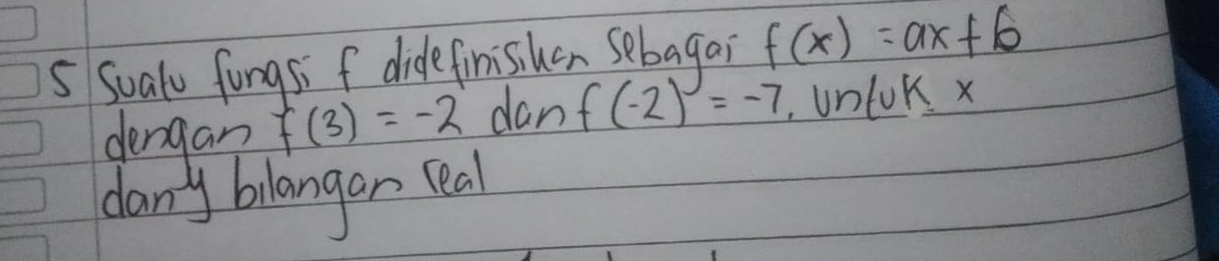 5 Suatu fungsi f didefinisikan sebagai f(x) = ax + b
dengan f(3) = -2 dan f(-2) = -7. Untuk x
dan y bilangan real